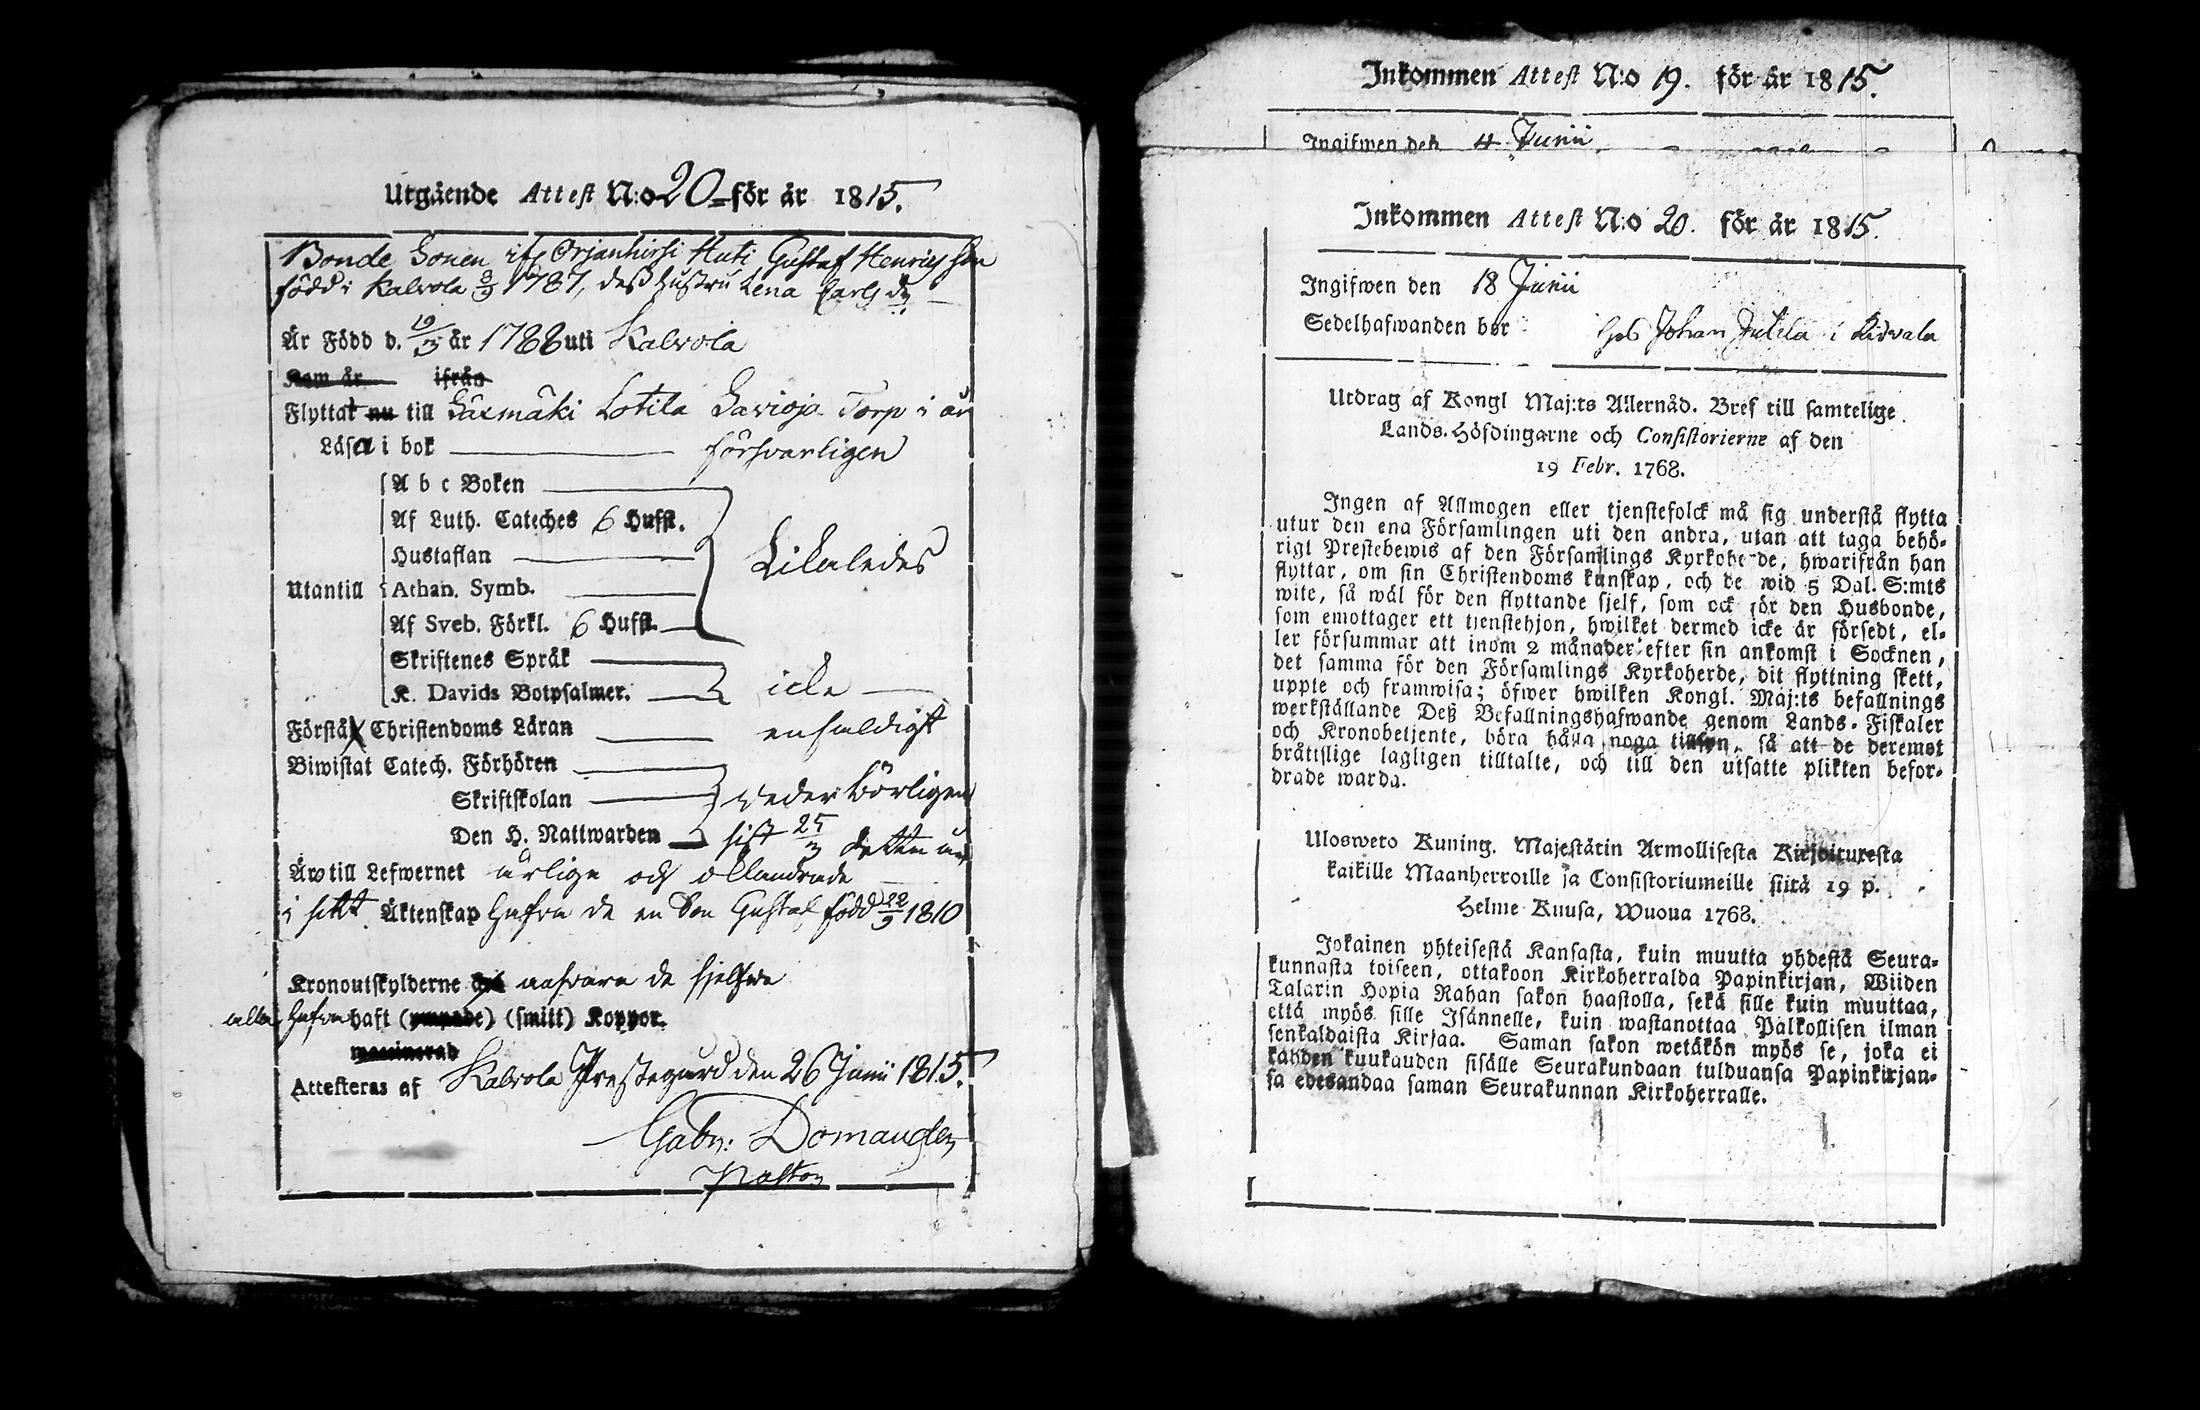 Utgående Attest N:o 20 för år 1815.
Bonde Sonen ifr Orjanhirsi Huti Gustaf Henricsson
född i Kalvola 8/9 1787, dess hustru Lena Carls dr
Är Född d. 19/3 år 1788 uti Kalvola
Kom år ifrån
Flyttat nu till Säxmäki Lotila Savioja Torp i år
Läsa i bok försvarligen
A b c Boken
Af Luth. Cateches 6 Hufst.
Hustaflan Likaledes
Utantill Athan. Symb.
Af Sveb. Förkl. 6 Hufst.
Skriftenes Språk
K. Davids Botpsalmer. icke
Förstå Christendoms Läran enfaldigt
Biwistat Catech. Förhören
Skriftskolan vederbörligen
Den H. Nattwarden sist 25/3 detta år
Äro till Lefwernet ärlige och oklandrade
i sitt Äktenskap hafva de en Son Gustaf född 22/9 1810
Kronoutskylderne ansvara de sjelfve
alla hafva haft (ympade) (smitt) Koppor.
Attesteras af Kalvola Prestegård den 26 Junii 1815.
Gabr: Domander
Pastor
Inkommen Attest N:o 19. för år 1815.
Ingifwen den 4 Junii
Inkommen Attest N:o 20. för år 1815.
Ingifwen den 18 Junii
Sedelhafwanden bor hos Johan Jutila i
Utdrag af Kongl Maj:ts Allernåd. Bref till samtelige
Lands-Höfdingarne och Consistorierne af den
19 Febr. 1768.
Ingen af Allmogen eller tjenstefolck må sig understå flytta
utur den ena Församlingen uti den andra, utan att taga behö-
rigt Prestebewis af den Församlings Kyrkoherde, hwarifrån han
flyttar, om sin Christendoms kunskap, och de wid 5 Dal. S:mts
wite, så wäl för den flyttande sjelf, som ock för den Husbonde,
som emottager ett tjenstehjon, hwilket dermed icke är försedt, el-
ler försummar att inom 2 månader efter sin ankomst i Socknen,
det samma för den Församlings Kyrkoherde, dit flyttning skett,
uppte och framwisa; öfwer hwilken Kongl. Maj:ts befallnings
werkställande Deß Befallningshafwande genom Lands-Fiskaler
och Kronobetjente, böra hålla noga tillsyn, så att de deremot
bråttslige lagligen tilltalte, och till den utsatte plikten befor-
drade warda.
Uloswero Kuning. Majestätin Armollisesta Kirjoituxesta
kaikille Maanherroille ja Consistoriumeille siitä 19 p.
Helme Kuusa, Wuoua 1768.
Jokainen yhteisestä Kansasta, kuin muutta yhdestä Seura-
kunnasta toiseen, ottakoon Kirkoherralda Papinkirjan, Wiiden
Talarin Hopia Rahan sakon haastolla, sekä sille kuin muuttaa,
että myös sille Isännelle, kuin wastanottaa Palkollisen ilman
senkaldaista Kirjaa. Saman sakon wetäkön myös se, joka ei
kahden kuukauden sisälle Seurakundaan tulduansa Papinkirjan-
sa edesandaa saman Seurakunnan Kirkoherralle.